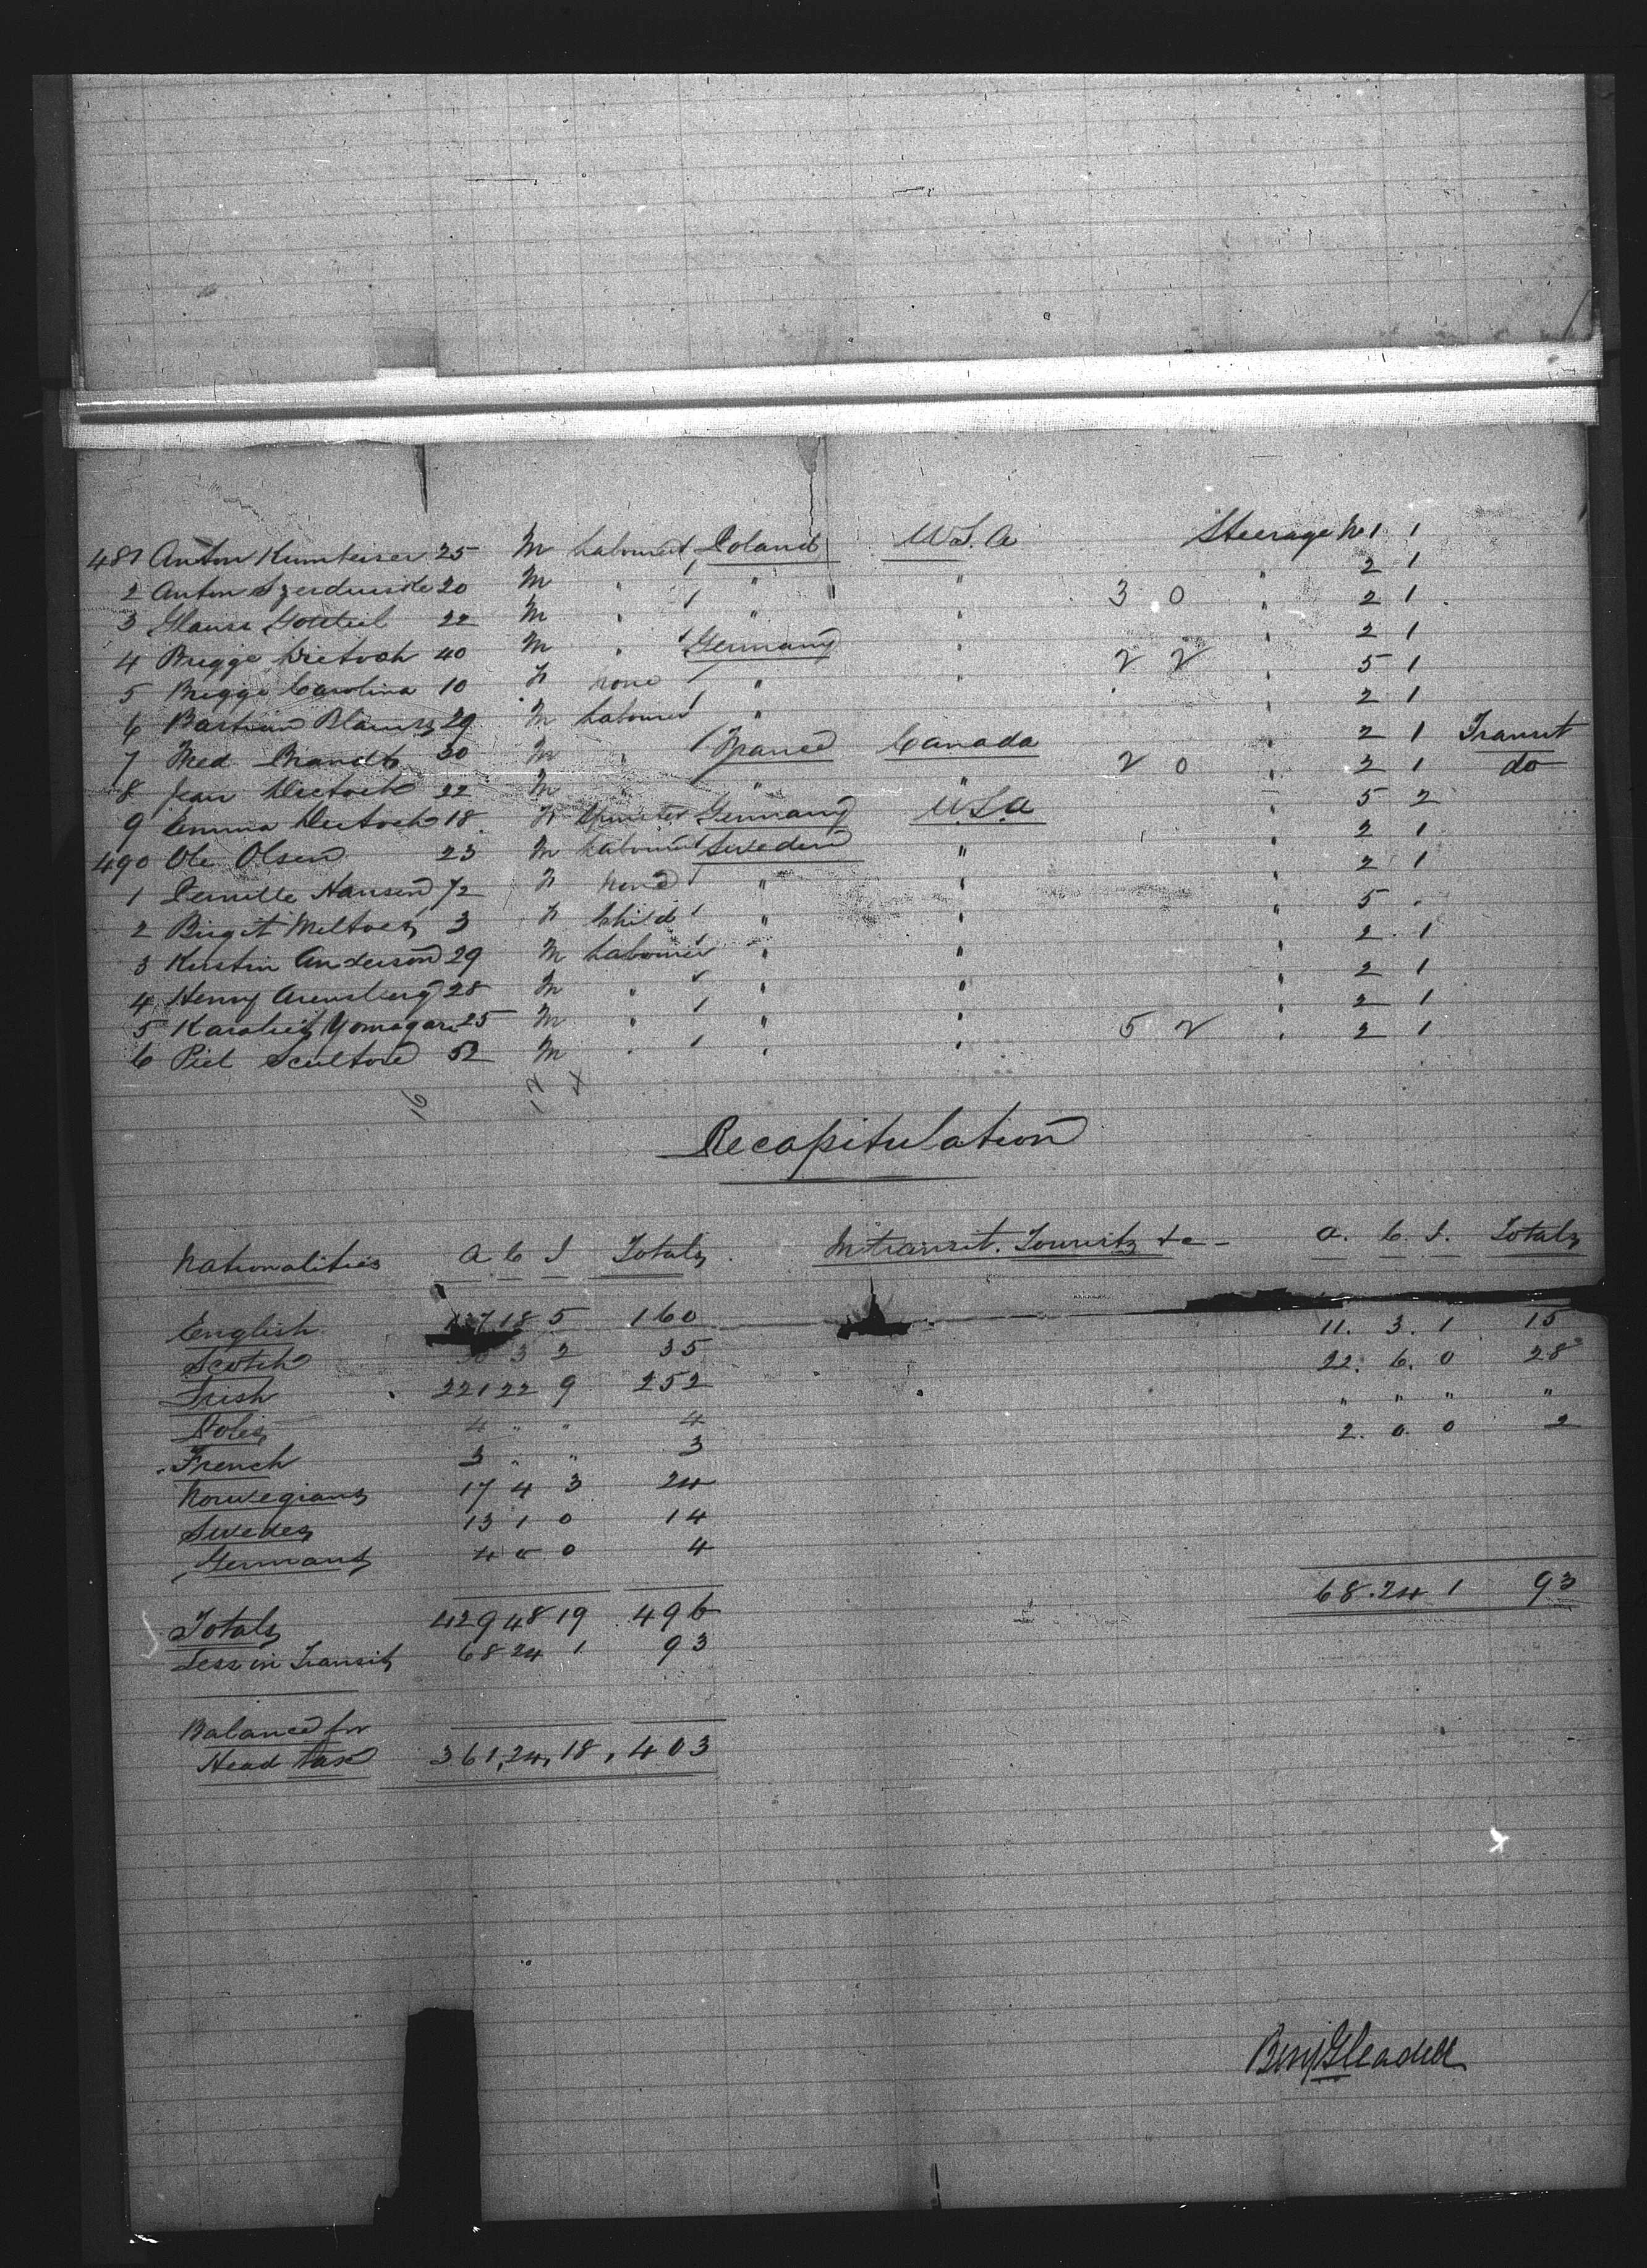 481 Anton Kumteiser 25 M Labourer Poland U.S.A Steerage No 1 1
2 Anton 20 M " " " " 2 1
3 Glause Gottlieb 22 M " " " 3 0 " 2 1
4 Brigge Dietosh 40 M " Germany " " 2 1
5 Brigge Carolina 10 F none " " 2 2 " 5 1
6 Bastian 29 M Labourer " " 2 1
7 Fred Brandt 30 M " France Canada " 2 1 Transit
8 Jean 22 M " " " 2 0 " 2 1 do
9 Emma 18 F Spinster Germany U.S.A " 5 2
490 Ole Olsen 23 M Labourer Sweden " " 2 1
1 Pernille Hansen F None " " " 2 1
2 Birgit 3 F Child " " " 5 "
3 Kerstin Anderson 29 M Labourer " " " 2 1
4 Henry Arensberg 28 M " " " " 2 1
5 25 M " " " " 2 1
6 Piet Scultore 52 M " " " 5 2 " 2 1
16 12 4
Recapitulation
Nationalities A C I Totals Intransit. Tourists &c - A. C. I. Totals
English 137 18 5 160 11. 3. 1 15
Scotch 30 3 2 35 22. 6. 0 28
Irish 221 22 9 252 " " " "
Poles 4 " " 4 2. 0. 0 2
French 3 " " 3
Norwegians 17 4 3 24
Swedes 13 1 0 14
Germans 4 0 0 4
Totals 429 48 19 496 68. 24 1 93
Less in Transit 68 24 1 93
Balance for
Head tax 361, 24, 18, 403
Benj Gleadell